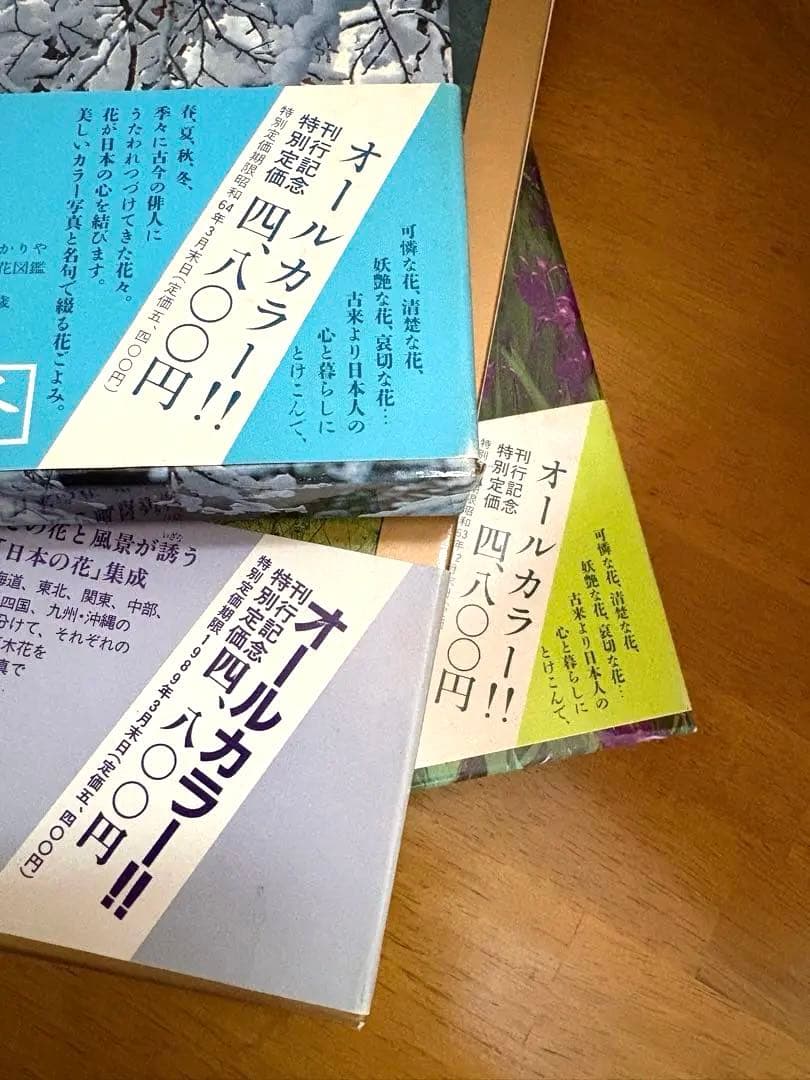 可憐な花、清楚な花、
妖艶な花、哀切な花…
古来より日本人の
心と暮らしに
とけこんで、
オールカラー!!
刊行記念
特別定価
四、八〇〇円
特別定価期限昭和64年3月末日(定価五、四〇〇円)
春、夏、秋、冬、
季々に古今の俳人に
うたわれつづけてきた花々。
花が日本の心を結びます。
美しいカラー写真と名句で綴る花ごよみ。
かりや
花図鑑
歳
可憐な花、清楚な花、
妖艶な花、哀切な花…
古来より日本人の
心と暮らしに
とけこんで、
オールカラー!!
刊行記念
特別定価
四、八〇〇円
オールカラー!!
刊行記念
特別定価
四、八〇〇円
特別定価期限1989年3月末日(定価五、四〇〇円)
の花と風景が誘う
いざな
「日本の花」集成
海道、東北、関東、中部、
四国、九州・沖縄の
分けて、それぞれの
木花を
真で